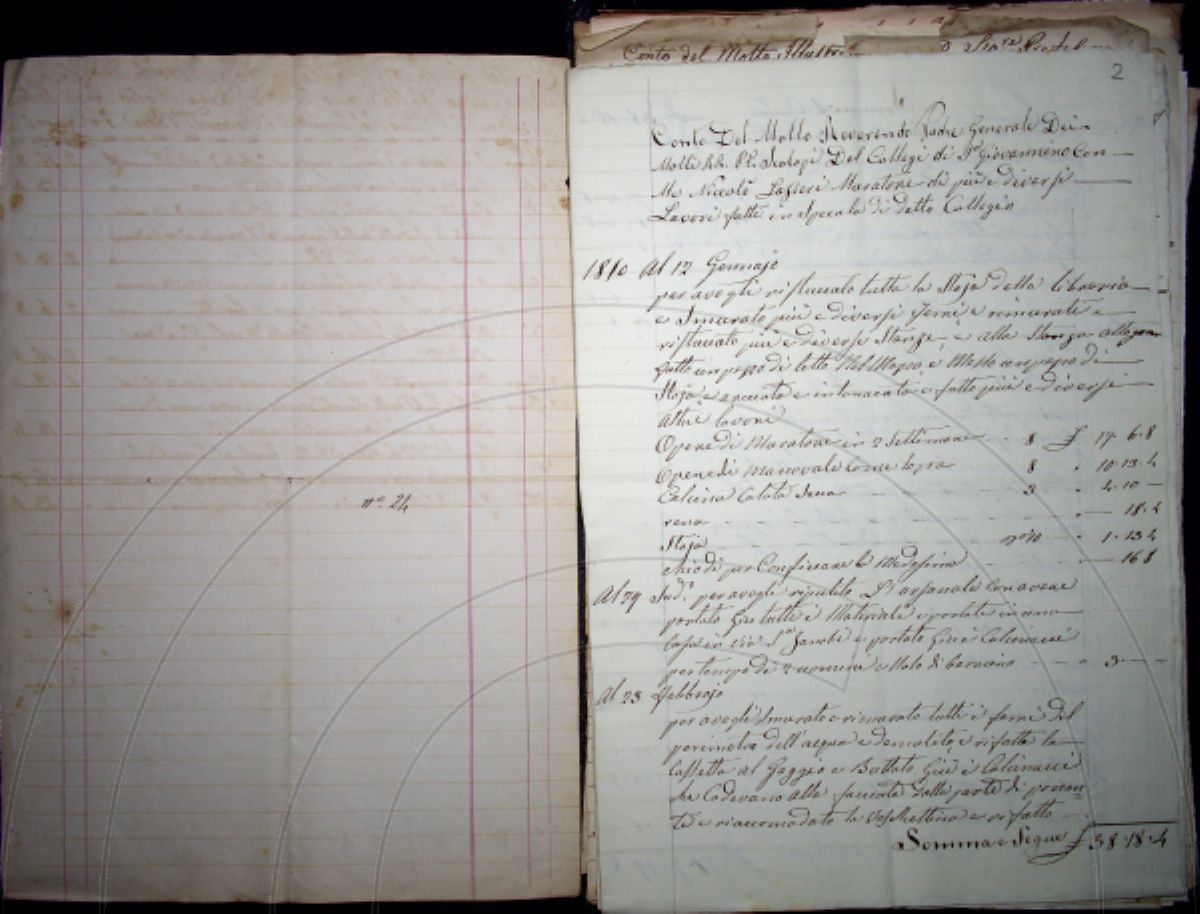 nº. 24
Conto del Molto Illustre
2
Conto Del Molto Reverendo Padre Generale Dei
Molti RR. PP. Scolopi Del Collegi di S. Giovannino Con
Me Niccolò Muratore di più e diversi
Lavori fatti in Specola di detto Collegio
1810 Al 12 Gennajo
per avegli ristuccato tutta la Stoja della libreria
e Smurato più e diversi ferri e rimurate e
ristuccato più e diverse Stanze e alla Stanza
fatto un pezzo di tetto e Messo un pezzo di
Stoja e intonacato e fatto più e diversi
Altri lavori
Opere di Muratore in 2 Settimane 8 £ 17. 6. 8
Opere di Manovale Come Sopra 8 " 10. 13. 4
Calcina 3 " 4. 10 —
rena " — 18. 4
Stoja nº 10 " 1. 13 4
Chiodi per Conficcare le Medesime " — 16 8
Al 29 per avegli ripulito L'arsenale Con avere
portato Giù tutti i Materiali e portati in una
Casa in Via S. Zanobi e portato Giù i Calcinacci
per tempo di 2 uomini e Nolo di baroccino " 3 —
Al 23 Febbrajo
per avegli Smurato e rimurato tutti i ferri del
perimetro dell'acqua e demolito e rifatto la
Cassetta al Gaggio e Buttato Giù i Calcinacci
che Cadevano Alla facciata dalla parte di ponen-
te e riaccomodato la e rifatto
Somma e Segue £ 38. 18. 4